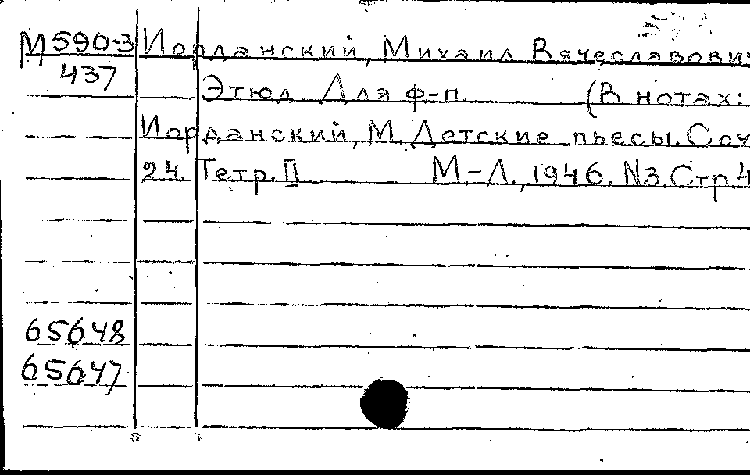 М590-3 Иорданский, Михаил Вячеславович
437 Этюд. Для ф-п. (В нотах:
Иорданский, М. Детские пьесы. Соч.
24. Тетр. II М.-Л., 1946. N3. Стр. 4
65648
65647